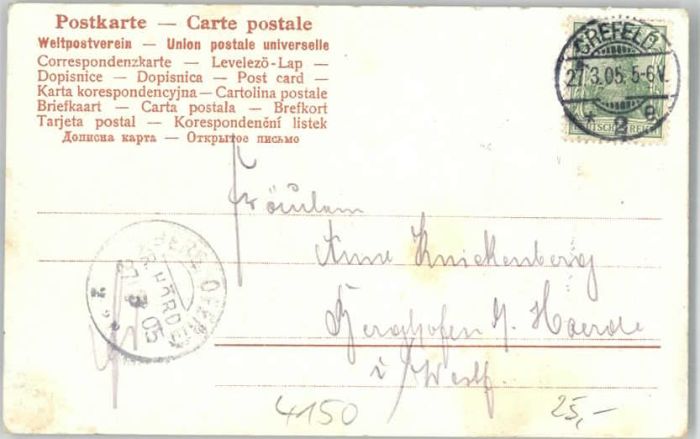 Postkarte — Carte postale
Weltpostverein — Union postale universelle
Correspondenzkarte — Levelező-Lap —
Dopisnice — Dopisnica — Post card —
Karta korespondencyjna — Cartolina postale
Briefkaart — Carta postala — Brefkort
Tarjeta postal — Korespondenční listek
Дописна карта — Открытое письмо
CREFELD
27.3.05. 5-6V.
* 2 e
Fräulein
Anne Knickenberg
Berghofen b. Hoerde
i/ Westf.
BERGHOFEN
KR. HÖRDE
27 3 05
4150
25,-